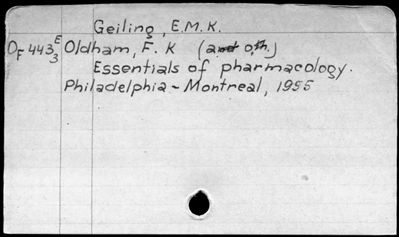 Geiling, E.M.K.
OF 443 E 3 Oldham, F. K (and oth.)
Essentials of pharmacology.
Philadelphia - Montreal, 1955